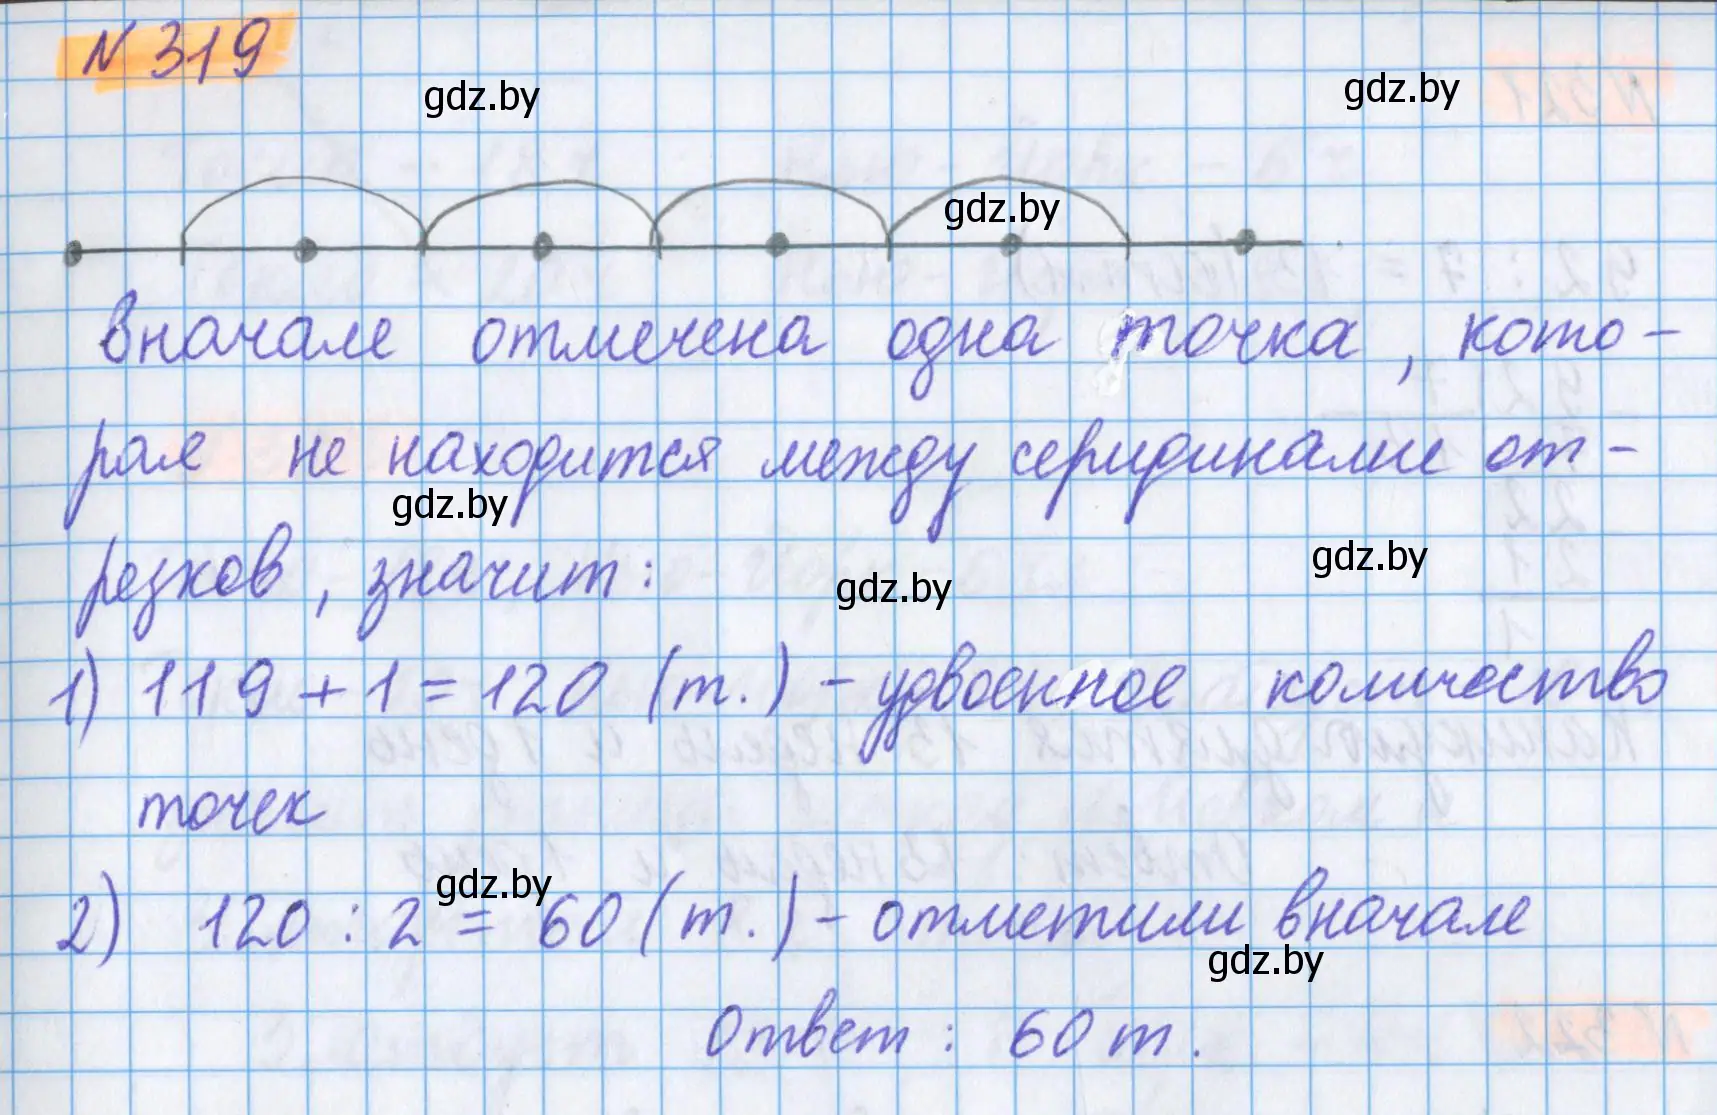 N 319
gdz.by
gdz.by
gdz.by
вначале отмечена одна точка, кото-
рая не находится между серидинами от-
gdz.by
резков, значит:
gdz.by
gdz.by
1) 119 + 1 = 120 (т.) - удвоенное количество
точек
gdz.by
2) 120 : 2 = 60 (т.) - отметили вначале
gdz.by
Ответ: 60 т.